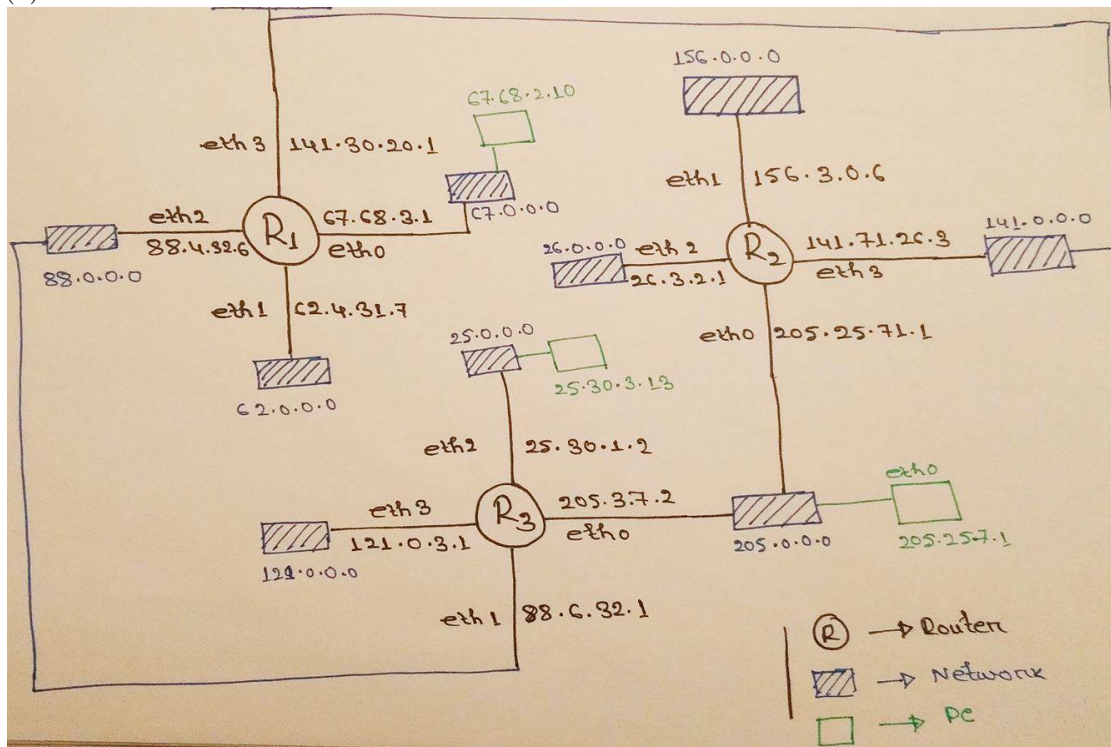 156.0.0.0
67.68.2.10
eth 3
141.30.20.1
eth1
156.3.0.6
eth2
88.4.32.6
R1
67.68.3.1
eth0
67.0.0.0
88.0.0.0
26.0.0.0
eth 2
26.3.2.1
R2
141.71.26.3
eth 3
141.0.0.0
eth1
62.4.31.7
62.0.0.0
eth0
205.25.71.1
25.0.0.0
25.30.3.13
eth2
25.30.1.2
eth 3
121.0.3.1
121.0.0.0
R3
205.3.7.2
eth0
205.0.0.0
eth0
205.25.7.1
eth 1
88.6.32.1
R → Router
→ Network
→ PC